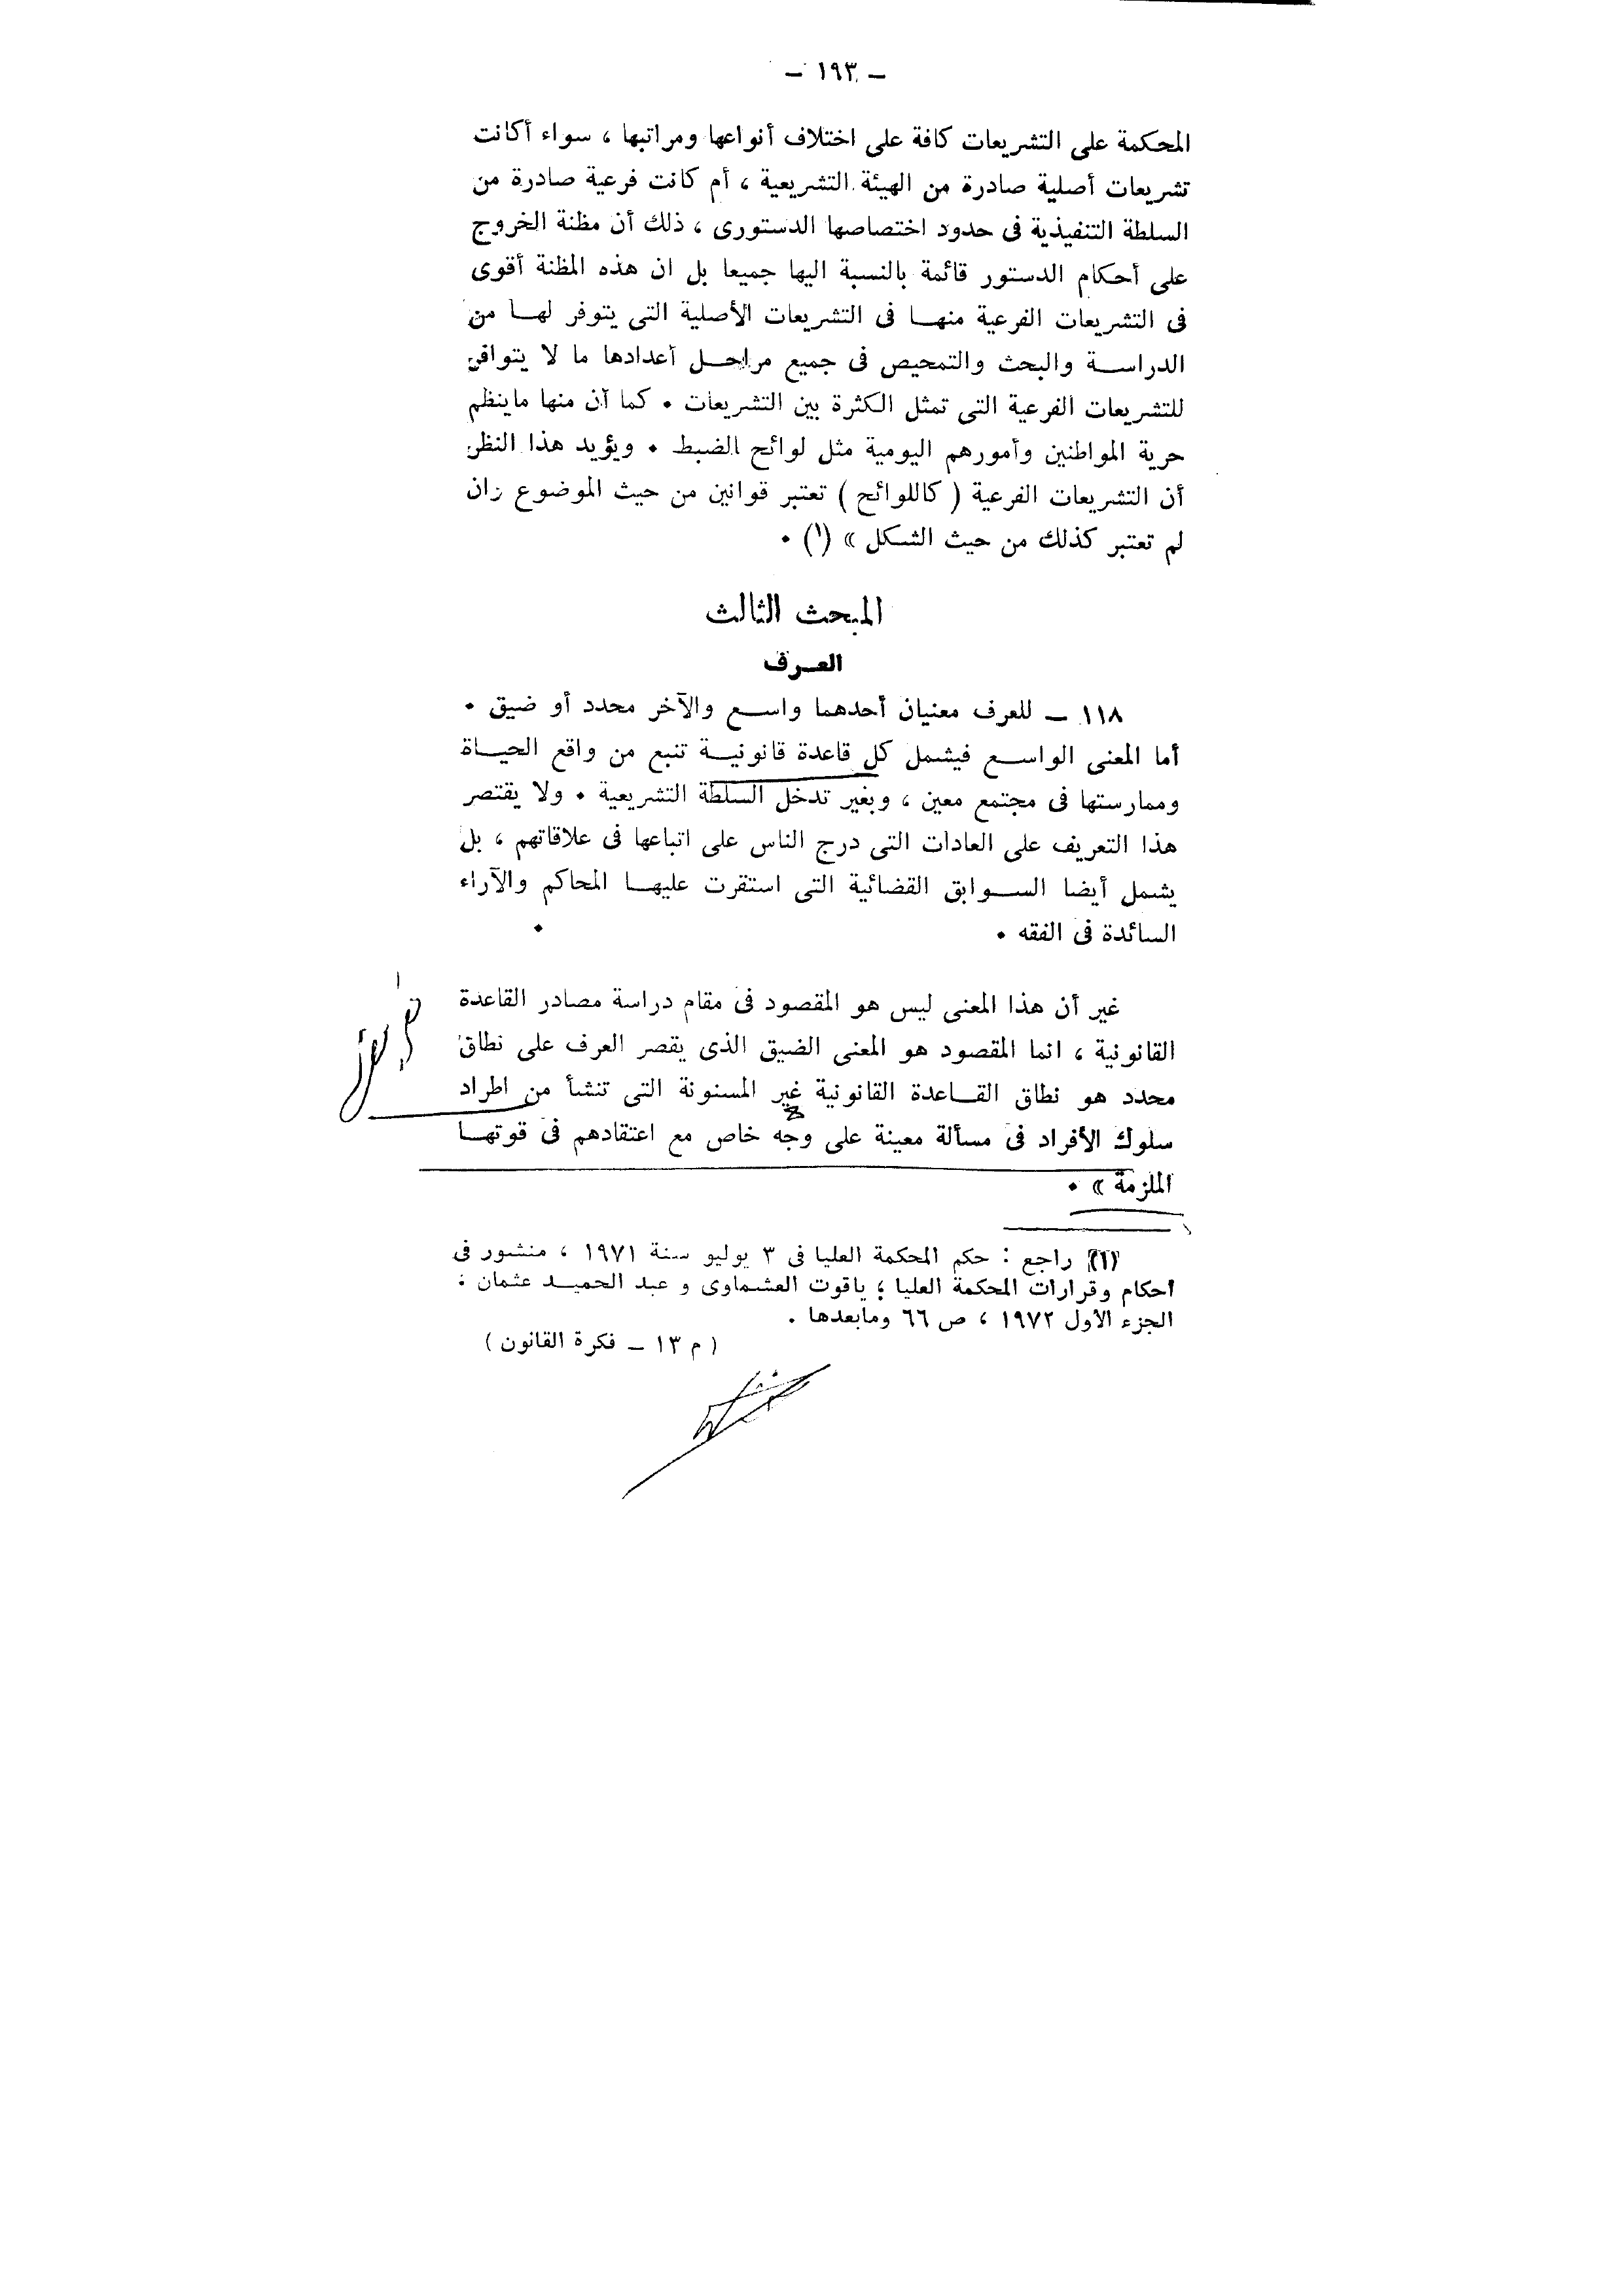 — ١٩٣ —
المحكمة على التشريعات كافة على اختلاف أنواعها ومراتبها ، سواء أكانت
تشريعات أصلية صادرة من الهيئة التشريعية ، أم كانت فرعية صادرة من
السلطة التنفيذية فى حدود اختصاصها الدستورى ، ذلك أن مظنة الخروج
على أحكام الدستور قائمة بالنسبة اليها جميعا بل ان هذه المظنة أقوى
فى التشريعات الفرعية منهـــا فى التشريعات الأصلية التى يتوفر لهـــا من
الدراســة والبحث والتمحيص فى جميع مراحــل أعدادها ما لا يتوافر
للتشريعات الفرعية التى تمثل الكثرة بين التشريعات • كما أن منها ماينظم
حرية المواطنين وأمورهم اليومية مثل لوائح الضبط • ويؤيد هذا النظر
أن التشريعات الفرعية ( كاللوائح ) تعتبر قوانين من حيث الموضوع وان
لم تعتبر كذلك من حيث الشكل » (١) •
المبحث الثالث
العـرف
١١٨ — للعرف معنيان أحدهما واســع والآخر محدد أو ضيق •
أما المعنى الواســع فيشمل كل قاعدة قانونيــة تنبع من واقع الحيــاة
وممارستها فى مجتمع معين ، وبغير تدخل السلطة التشريعية • ولا يقتصر
هذا التعريف على العادات التى درج الناس على اتباعها فى علاقاتهم ، بل
يشمل أيضا الســوابق القضائية التى استقرت عليهــا المحاكم والآراء
السائدة فى الفقه •
غير أن هذا المعنى ليس هو المقصود فى مقام دراسة مصادر القاعدة
القانونية ، انما المقصود هو المعنى الضيق الذى يقصر العرف على نطاق
محدد هو نطاق القــاعدة القانونية غير المسنونة التى تنشأ من اطراد
سلوك الأفراد فى مسألة معينة على وجه خاص مع اعتقادهم فى قوتهــا
الملزمة » •
(١) راجع : حكم المحكمة العليا فى ٣ يوليو سنة ١٩٧١ ، منشور فى
أحكام وقرارات المحكمة العليا ؛ ياقوت العشماوى و عبد الحميــد عثمان :
الجزء الأول ١٩٧٢ ، ص ٦٦ ومابعدها .
( م ١٣ — فكرة القانون )